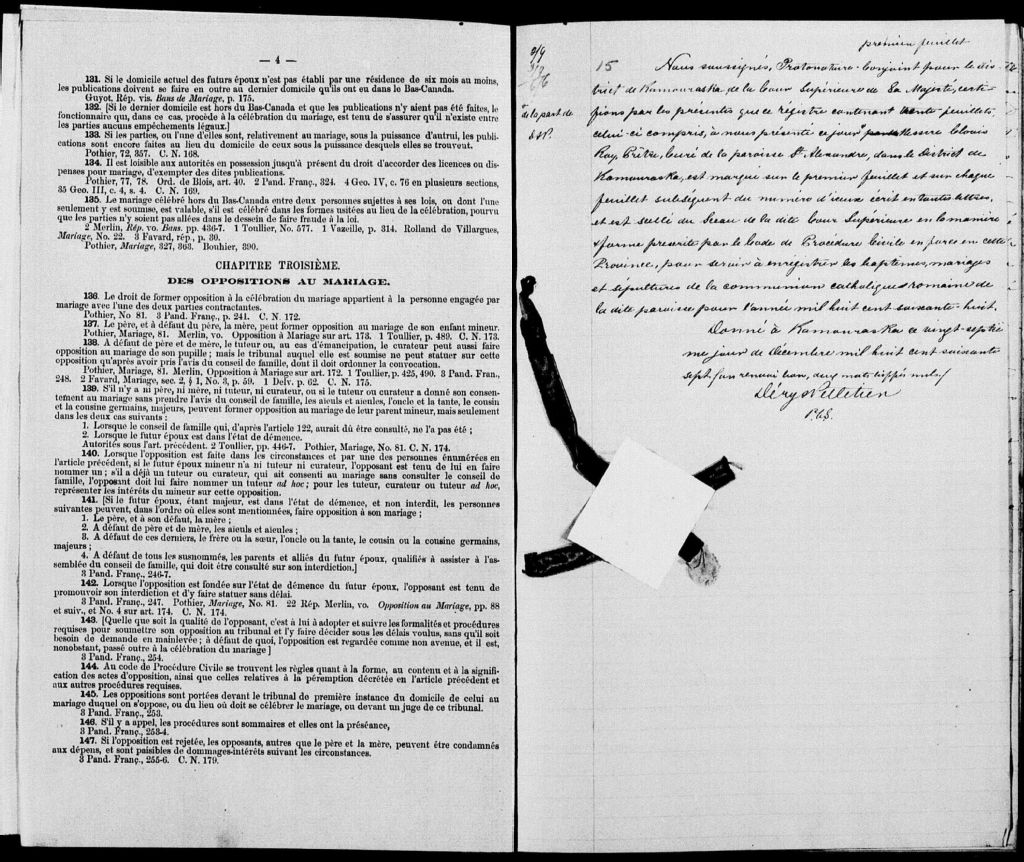 — 4 —
131. Si le domicile actuel des futurs époux n'est pas établi par une résidence de six mois au moins,
les publications doivent se faire en outre au dernier domicile qu'ils ont eu dans le Bas-Canada.
Guyot, Rép. vis. Bans de Mariage, p. 175.
132. [Si le dernier domicile est hors du Bas-Canada et que les publications n'y aient pas été faites, le
fonctionnaire qui, dans ce cas, procède à la célébration du mariage, est tenu de s'assurer qu'il n'existe entre
les parties aucuns empêchements légaux.]
133. Si les parties, ou l'une d'elles sont, relativement au mariage, sous la puissance d'autrui, les publi-
cations sont encore faites au lieu du domicile de ceux sous la puissance desquels elles se trouvent.
Pothier, 72, 357. C. N. 168.
134. Il est loisible aux autorités en possession jusqu'à présent du droit d'accorder des licences ou dis-
penses pour mariage, d'exempter des dites publications.
Pothier, 77, 78. Ord. de Blois, art. 40. 2 Pand. Franç., 324. 4 Geo. IV, c. 76 en plusieurs sections,
35 Geo. III, c. 4, s. 4. C. N. 169.
135. Le mariage célébré hors du Bas-Canada entre deux personnes sujettes à ses lois, ou dont l'une
seulement y est soumise, est valable, s'il est célébré dans les formes usitées au lieu de la célébration, pourvu
que les parties n'y soient pas allées dans le dessein de faire fraude à la loi.
2 Merlin, Rép. vo. Bans. pp. 436-7. 1 Toullier, No. 577. 1 Vazeille, p. 314. Rolland de Villargues,
Mariage, No. 22. 3 Favard, rép., p. 30.
Pothier, Mariage, 327, 363. Bouhier, 390.
CHAPITRE TROISIÈME.
DES OPPOSITIONS AU MARIAGE.
136. Le droit de former opposition à la célébration du mariage appartient à la personne engagée par
mariage avec l'une des deux parties contractantes.
Pothier, No 81. 3 Pand. Franç., p. 241. C. N. 172.
137. Le père, et à défaut du père, la mère, peut former opposition au mariage de son enfant mineur.
Pothier, Mariage, 81. Merlin, vo. Opposition à Mariage sur art. 173. 1 Toullier, p. 489. C. N. 173.
138. A défaut de père et de mère, le tuteur ou, au cas d'émancipation, le curateur peut aussi faire
opposition au mariage de son pupille; mais le tribunal auquel elle est soumise ne peut statuer sur cette
opposition qu'après avoir pris l'avis du conseil de famille, dont il doit ordonner la convocation.
Pothier, Mariage, 81. Merlin, Opposition à Mariage sur art. 172. 1 Toullier, p. 425, 490. 3 Pand. Fran.,
248. 2 Favard, Mariage, sec. 2, § 1, No. 3, p. 59. 1 Delv. p. 62. C. N. 175.
139. S'il n'y a ni père, ni mère, ni tuteur, ni curateur, ou si le tuteur ou curateur a donné son consen-
tement au mariage sans prendre l'avis du conseil de famille, les aïeuls et aïeules, l'oncle et la tante, le cousin
et la cousine germains, majeurs, peuvent former opposition au mariage de leur parent mineur, mais seulement
dans les deux cas suivants :
1. Lorsque le conseil de famille qui, d'après l'article 122, aurait dû être consulté, ne l'a pas été ;
2. Lorsque le futur époux est dans l'état de démence.
Autorités sous l'art. précédent. 2 Toullier, pp. 446-7. Pothier, Mariage, No. 81. C. N. 174.
140. Lorsque l'opposition est faite dans les circonstances et par une des personnes énumérées en
l'article précédent, si le futur époux mineur n'a ni tuteur ni curateur, l'opposant est tenu de lui en faire
nommer un ; s'il a déjà un tuteur ou curateur, qui ait consenti au mariage sans consulter le conseil de
famille, l'opposant doit lui faire nommer un tuteur ad hoc ; pour les tuteur, curateur ou tuteur ad hoc,
représenter les intérêts du mineur sur cette opposition.
141. [Si le futur époux, étant majeur, est dans l'état de démence, et non interdit, les personnes
suivantes peuvent, dans l'ordre où elles sont mentionnées, faire opposition à son mariage ;
1. Le père, et à son défaut, la mère ;
2. A défaut de père et de mère, les aïeuls et aïeules ;
3. A défaut de ces derniers, le frère ou la sœur, l'oncle ou la tante, le cousin ou la cousine germains,
majeurs ;
4. A défaut de tous les susnommés, les parents et alliés du futur époux, qualifiés à assister à l'as-
semblée du conseil de famille, qui doit être consulté sur son interdiction.]
3 Pand. Franç., 246-7.
142. Lorsque l'opposition est fondée sur l'état de démence du futur époux, l'opposant est tenu de
promouvoir son interdiction et d'y faire statuer sans délai.
3 Pand. Franç., 247. Pothier, Mariage, No. 81. 22 Rép. Merlin, vo. Opposition au Mariage, pp. 88
et suiv., et No. 4 sur art. 174. C. N. 174.
143. [Quelle que soit la qualité de l'opposant, c'est à lui à adopter et suivre les formalités et procédures
requises pour soumettre son opposition au tribunal et l'y faire décider sous les délais voulus, sans qu'il soit
besoin de demande en mainlevée ; à défaut de quoi, l'opposition est regardée comme non avenue, et il est,
nonobstant, passé outre à la célébration du mariage ]
3 Pand. Franç., 254.
144. Au code de Procédure Civile se trouvent les règles quant à la forme, au contenu et à la signifi-
cation des actes d'opposition, ainsi que celles relatives à la péremption décrétée en l'article précédent et
aux autres procédures requises.
145. Les oppositions sont portées devant le tribunal de première instance du domicile de celui au
mariage duquel on s'oppose, ou du lieu où doit se célébrer le mariage, ou devant un juge de ce tribunal.
3 Pand. Franç., 253.
146. S'il y a appel, les procédures sont sommaires et elles ont la préséance,
3 Pand. Franç., 253-4.
147. Si l'opposition est rejetée, les opposants, autres que le père et la mère, peuvent être condamnés
aux dépens, et sont paisibles de dommages-intérêts suivant les circonstances.
3 Pand. Franç., 255-6. C. N. 179.
premier feuillet
15 Nous soussignés, Protonotaire-Conjoint pour le dis-
trict de Kamouraska, de la Cour Supérieure de Sa Majesté, certi-
fions par les présentes que ce régistre contenant trente feuillets,
celui-ci compris, à nous présenté ce jour par Messire Clovis
"de la part de
D&P.
Roy, Prêtre, Curé de la paroisse St Alexandre, dans le District de
Kamouraska, est marqué sur le premier feuillet et sur chaque
feuillet subséquent du numéro d'iceux écrit en toutes lettres,
et est scellé du Sceau de la dite Cour Supérieure en la manière
& forme prescrite par le Code de Procédure Civile en force en cette
Province, pour servir à enregistrer les baptêmes, mariages
et sépultures de la communion catholique romaine de
la dite paroisse pour l'année mil huit cent soixante huit.
Donné à Kamouraska ce vingt-septiè
me jour de Décembre mil huit cent soixante
sept. /un renvoi bon, deux mots biffés nuls/
Déry & Pelletier
P.C.S.